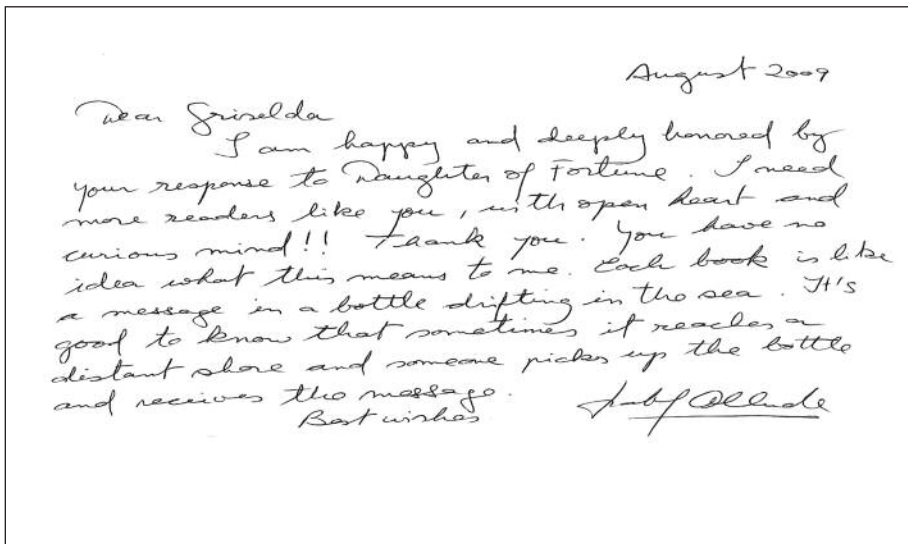 August 2009
Dear Griselda
I am happy and deeply honored by
your response to Daughter of Fortune. I need
more readers like you, with open heart and
curious mind!! Thank you. You have no
idea what this means to me. Each book is like
a message in a bottle drifting in the sea. It's
good to know that sometimes it reaches a
distant shore and someone picks up the bottle
and receives the message.
Best wishes Isabel Allende